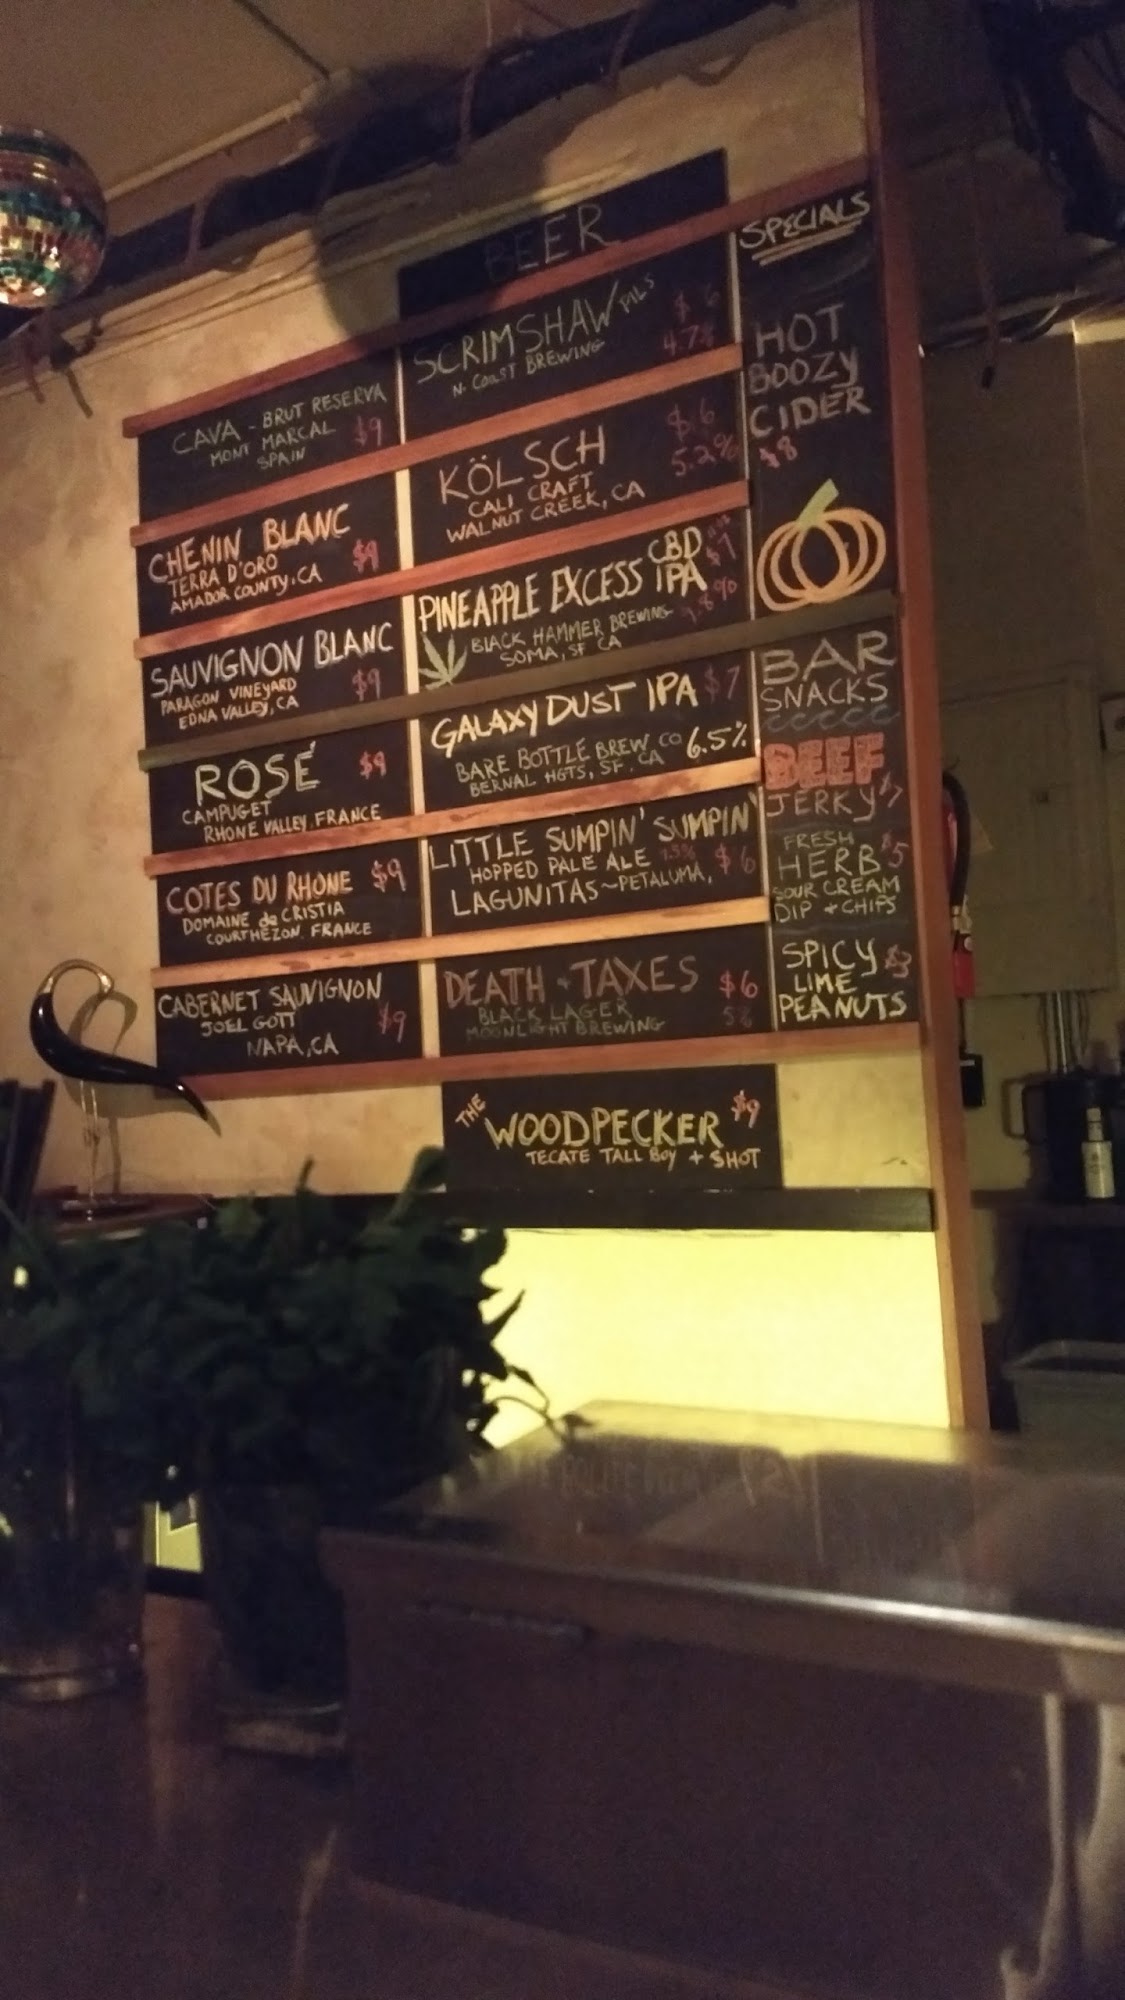 CAVA - BRUT RESERVA
MONT MARCAL $9
SPAIN
CHENIN BLANC
TERRA D'ORO $9
AMADOR COUNTY, CA
SAUVIGNON BLANC
PARAGON VINEYARD $9
EDNA VALLEY, CA
ROSÉ $9
CAMPUGET
RHONE VALLEY, FRANCE
COTES DU RHONE $9
DOMAINE de CRISTIA
COURTHÉZON, FRANCE
CABERNET SAUVIGNON
JOEL GOTT $9
NAPA, CA
BEER
SCRIMSHAW PILS $6
N. COAST BREWING 4.7%
KÖLSCH $6
CALI CRAFT 5.2%
WALNUT CREEK, CA
PINEAPPLE EXCESS CBD IPA $7
BLACK HAMMER BREWING
SOMA, SF CA
GALAXY DUST IPA $7
BARE BOTTLE BREW CO 6.5%
BERNAL HGTS, SF, CA
LITTLE SUMPIN' SUMPIN'
HOPPED PALE ALE 7.5% $6
LAGUNITAS ~ PETALUMA,
DEATH + TAXES $6
BLACK LAGER 5%
MOONLIGHT BREWING
THE WOODPECKER $9
TECATE TALL BOY + SHOT
SPECIALS
HOT
BOOZY
CIDER
$8
BAR
SNACKS
BEEF
JERKY $7
FRESH
HERB $5
SOUR CREAM
DIP + CHIPS
SPICY $3
LIME
PEANUTS